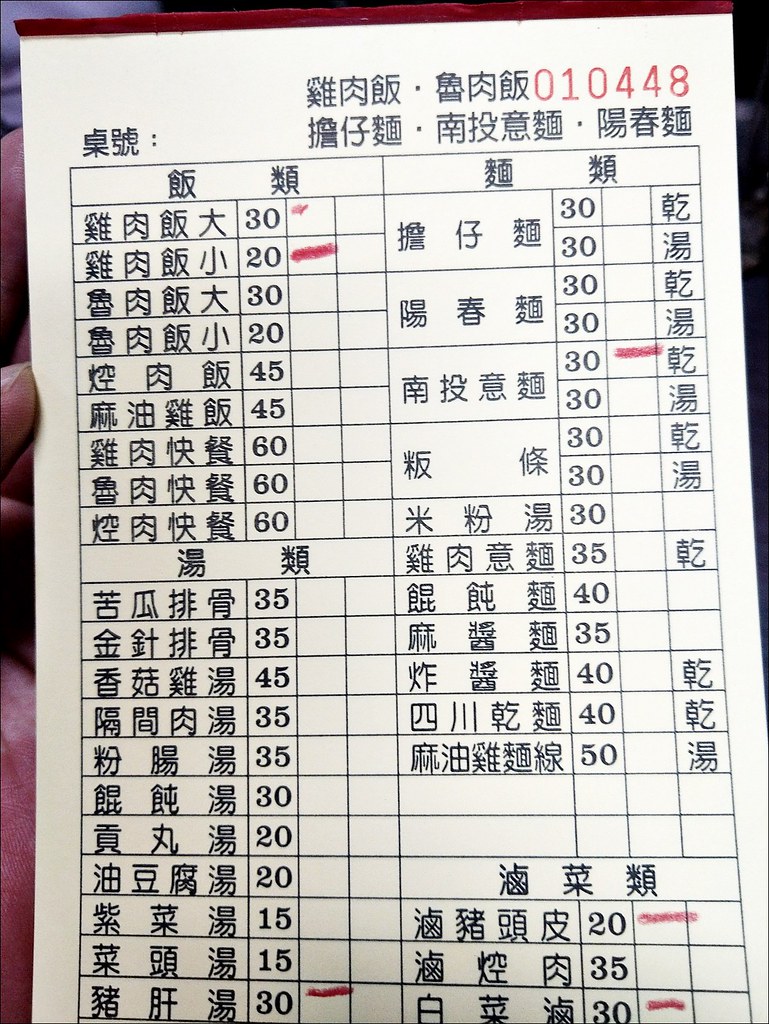 雞肉飯．魯肉飯 010448
桌號： 擔仔麵．南投意麵．陽春麵
飯類
雞肉飯大 30
雞肉飯小 20
魯肉飯大 30
魯肉飯小 20
焢肉飯 45
麻油雞飯 45
雞肉快餐 60
魯肉快餐 60
焢肉快餐 60
湯類
苦瓜排骨 35
金針排骨 35
香菇雞湯 45
隔間肉湯 35
粉腸湯 35
餛飩湯 30
貢丸湯 20
油豆腐湯 20
紫菜湯 15
菜頭湯 15
豬肝湯 30
麵類
擔仔麵 30 乾
30 湯
陽春麵 30 乾
30 湯
南投意麵 30 乾
30 湯
粄條 30 乾
30 湯
米粉湯 30
雞肉意麵 35 乾
餛飩麵 40
麻醬麵 35
炸醬麵 40 乾
四川乾麵 40 乾
麻油雞麵線 50 湯
滷菜類
滷豬頭皮 20
滷焢肉 35
白菜滷 30